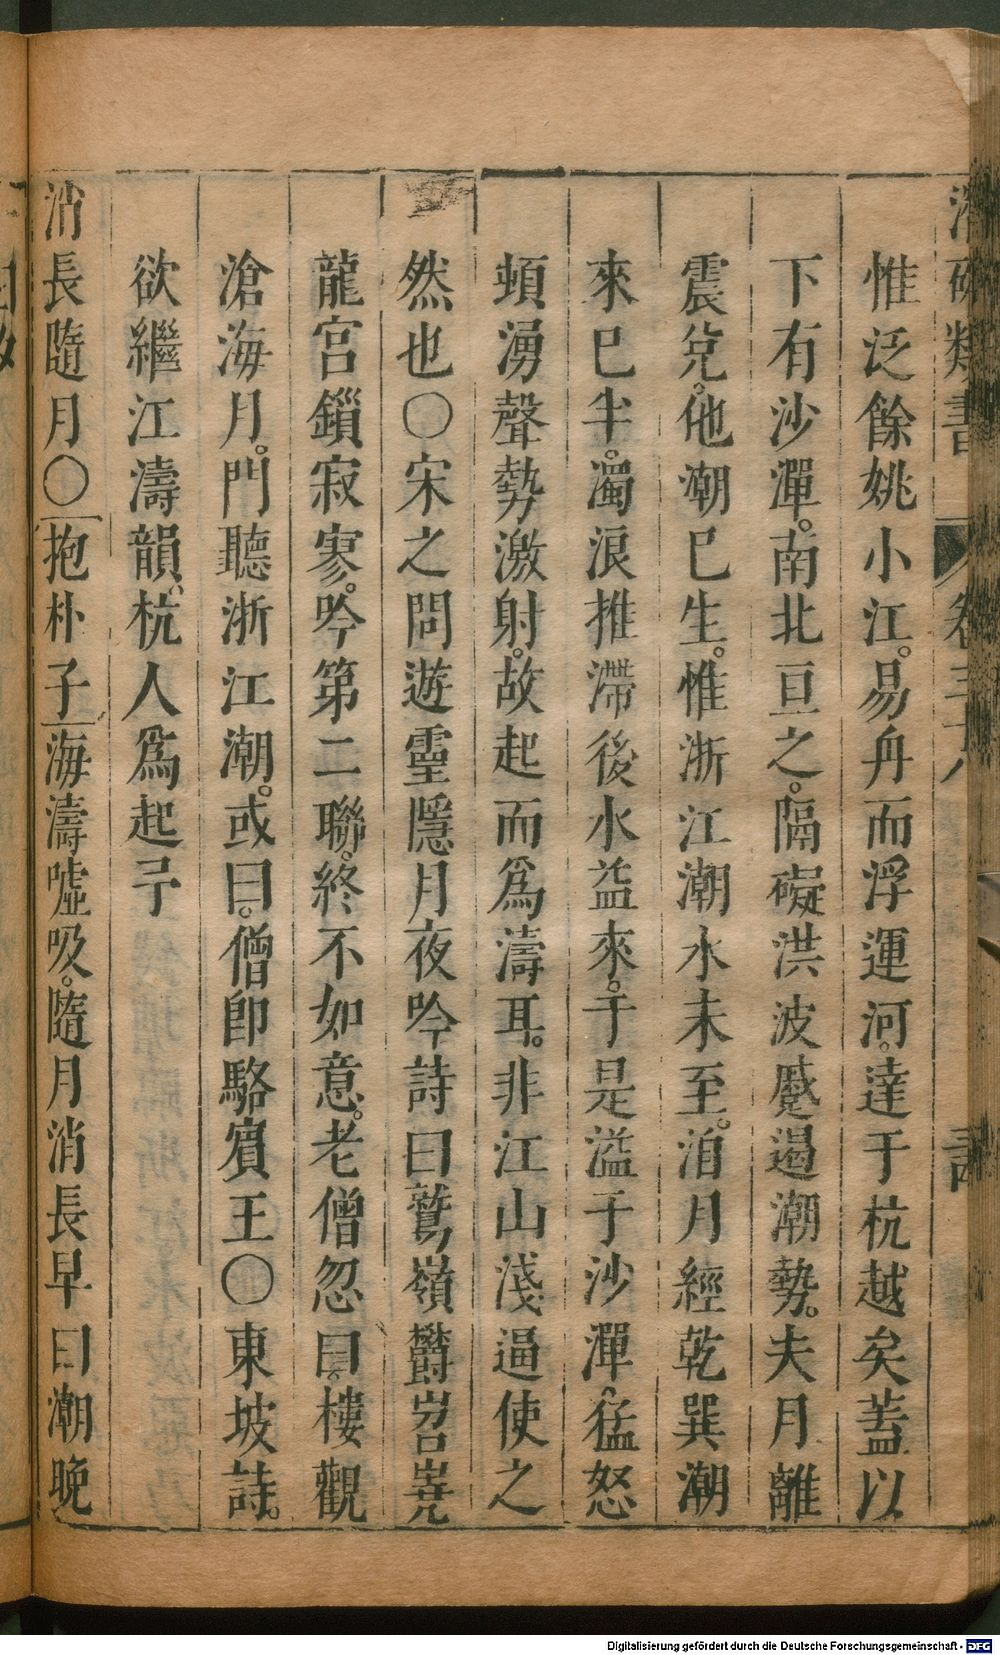 惟泛餘姚小江。易舟而浮運河。達于杭越矣蓋以
下有沙潬。南北亘之。隔礙洪波蹙遏潮勢。夫月離
震兌。他潮已生。惟浙江潮水未至。洎月經乾巽潮
來已半。濁浪推滯後水益來。于是溢于沙潬。猛怒
頓湧聲勢激射。故起而爲濤耳。非江山淺逼使之
然也〇宋之問遊靈隱月夜吟詩曰鷲嶺欝岧嶤
龍宮鎖寂寥。吟第二聯。終不如意。老僧忽曰。樓觀
滄海月。門聽浙江潮。或曰。僧卽駱賓王〇東坡詩。
欲繼江濤韻。杭人爲起予
消長隨月〇抱朴子海濤噓吸。隨月消長早曰潮晚
類書 卷三十八
Digitalisierung gefördert durch die Deutsche Forschungsgemeinschaft - DFG